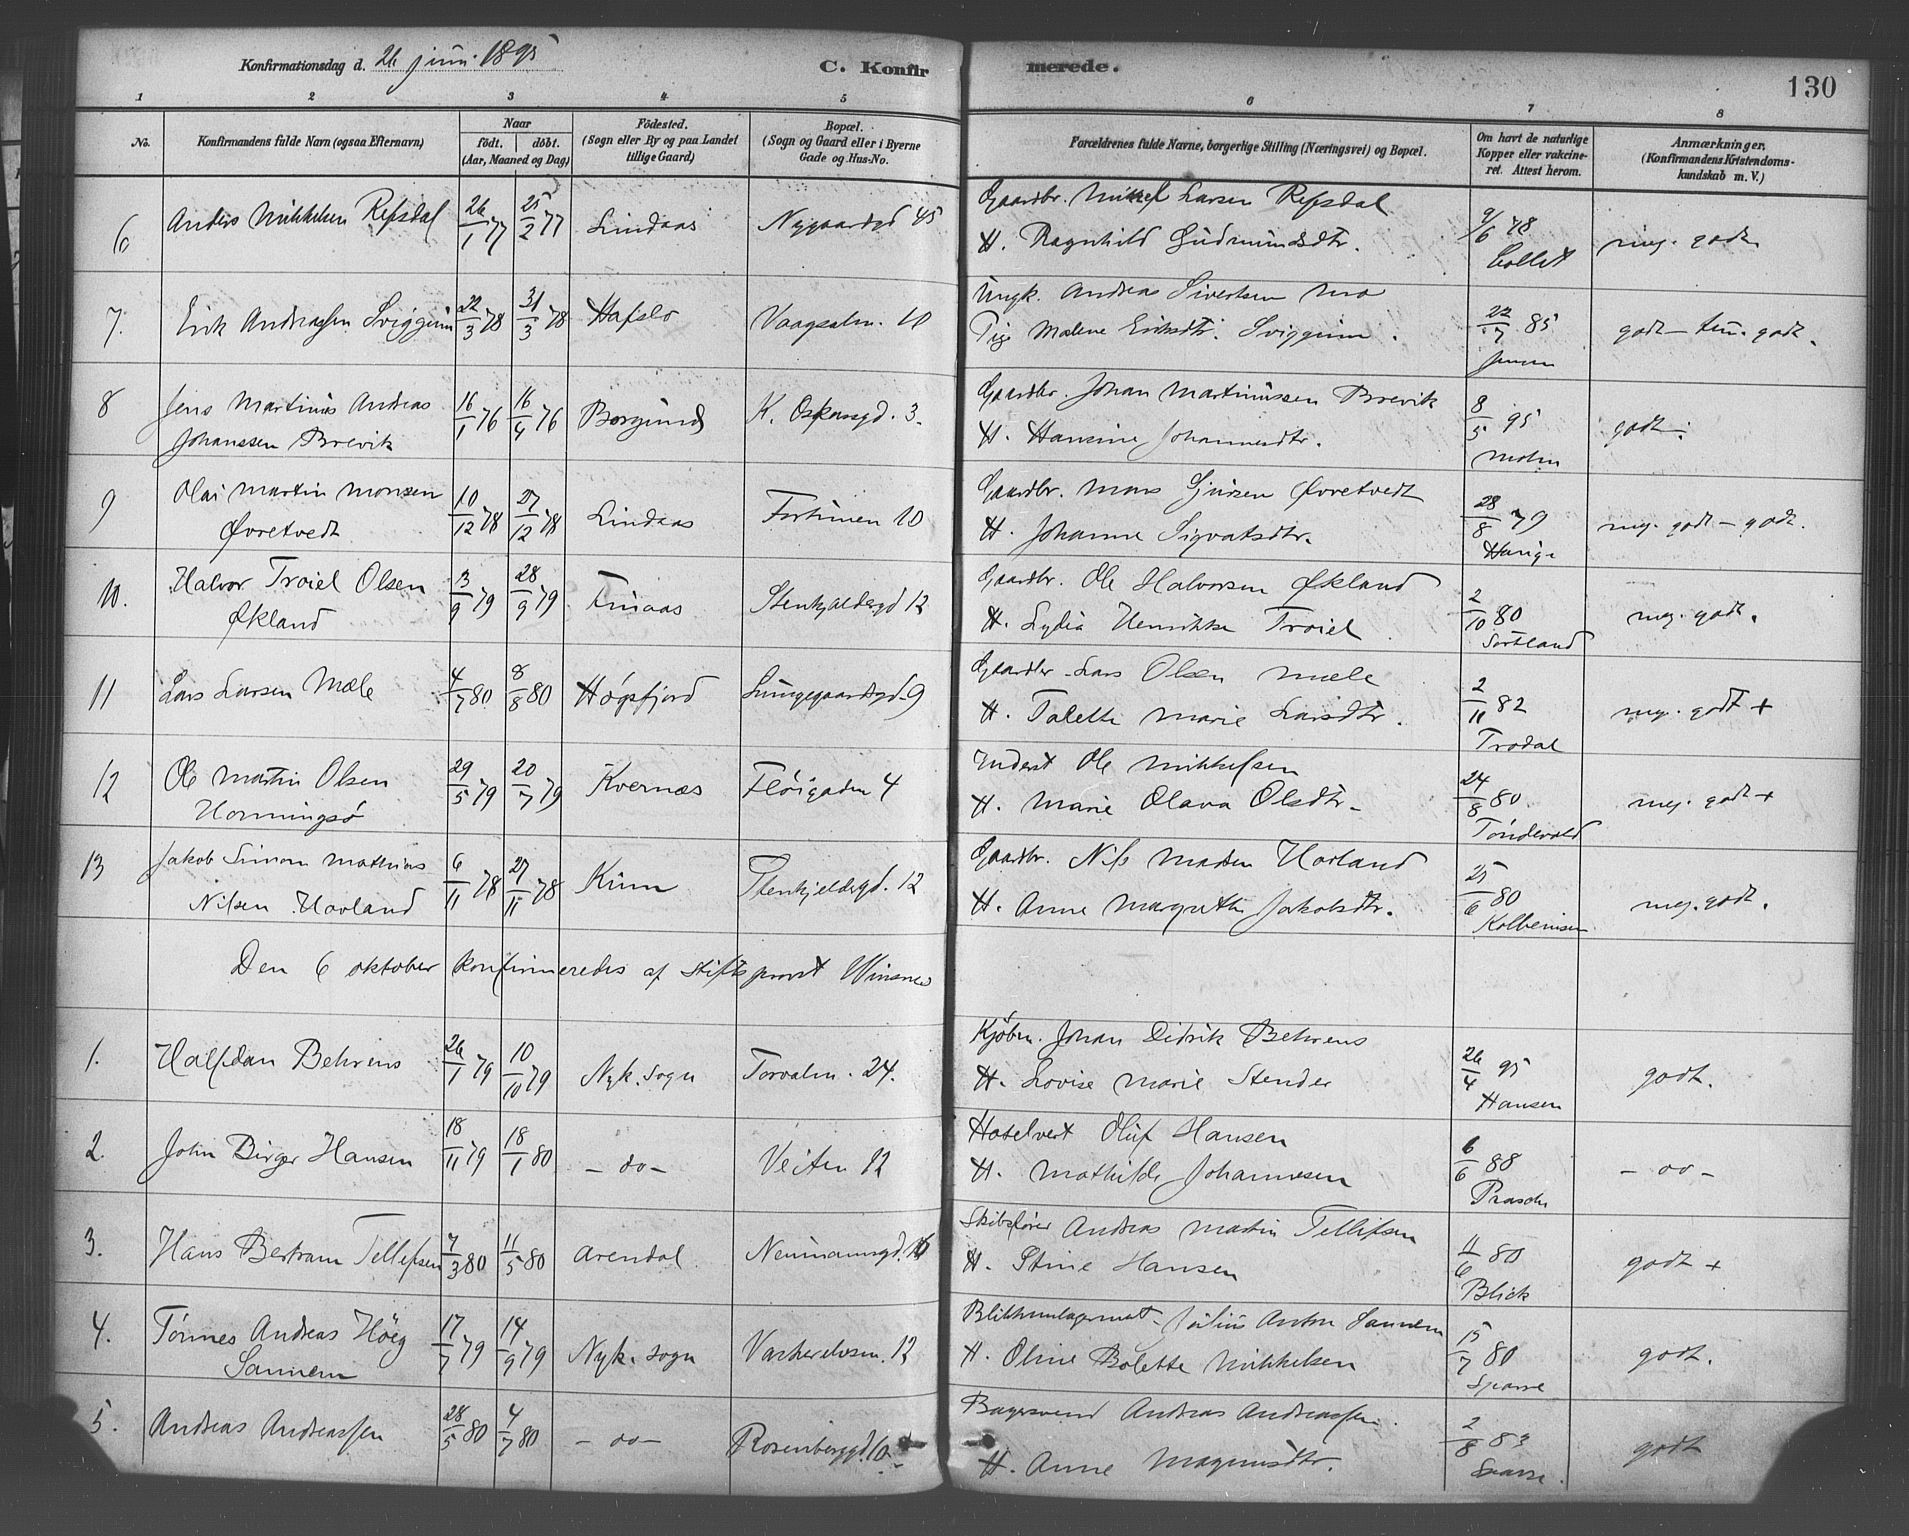 Konfirmationsdag d. 26 juni 1895
C. Konfirmerede.
130
1 2 3 4 5 6 7 8
No.
Konfirmandens fulde Navn (ogsaa Efternavn)
Naar
født. døbt.
(Aar, Maaned og Dag)
Fødested.
(Sogn eller By og paa Landet
tillige Gaard)
Bopæl.
(Sogn og Gaard eller i Byerne
Gade og Hus-No.
Forældrenes fulde Navne, borgerlige Stilling (Næringsvei) og Bopæl.
Om havt de naturlige
Kopper eller vakcine-
ret. Attest herom.
Anmærkninger.
(Konfirmandens Kristendoms-
kundskab m. V.)
6 Anders Mikkelsen Refsdal 26/1 77 25/2 77 Lindaas Nygaardsgd 45 Gaardbr. Mikkel Larsen Refsdal 9/6 78 meg. godt
H. Ragnhild Gudmundsdtr. Collet
7. Erik Andreassen Sviggum 22/3 78 31/3 78 Hafslo Vaagsalm. 10 Ungk. Andreas Sivertsen Mo 22/7 85 godt - tem. godt.
Pige Malene Eriksdtr. Sviggum. Jensen
8 Jens Martinus Andreas 16/1 76 16/4 76 Borgund K. Oskarsgd. 3. Gaardbr. Johan Martinussen Brevik 8/5 95 godt.
Johanssen Brevik H. Hansine Johannesdtr. Mohn
9 Olai Martin Monsen 10/12 78 27/12 78 Lindaas Fortunen 10 Gaardbr. Mons Gjursen Øvretvedt 28/8 79 meg. godt - godt.
Øvretvedt H. Johanne Sigvatsdtr.
10. Halvor Troiel Olsen 13/9 79 28/9 79 Finaas Stenkjeldergd 12 Gaardbr. Ole Halvorsen Økland 2/10 80 meg. godt.
Økland H. Lydia Henrikke Troiel Sortland
11 Lars Larsen Mæle 4/7 80 8/8 80 Høgsfjord Lungegaardsgd. 9 Gaardbr Lars Olsen Mæle 2/11 82 meg. godt +
H. Talette Marie Larsdtr. Trodal
12 Ole Martin Olsen 29/5 79 20/7 79 Kvernæs Fløigaden 4 Inderst Ole Mikkelsen 24/8 80 meg. godt +
Horningsø H. Marie Olava Olsdtr. Tøndevold
13 Jakob Simon Mathias 6/11 78 27/11 78 Kinn Stenkjeldergd. 12 Gaardbr. Nils Madsen Hovland 25/6 80 meg. godt.
Nilsen Hovland H. Anne Margrethe Jakobsdtr. Kolbeinsen
Den 6 oktober konfirmeredes af Stiftsprovst Winsnes
1. Halfdan Behrens 26/1 79 10/10 79 Nyk. sogn Torvalm. 24. Kjøbm. Johan Didrik Behrens 26/4 95 godt.
H. Lovise Marie Stender Hansen
2. John Birger Hansen 18/11 79 18/1 80 - do - Veiten 12 Hotelvert Oluf Hansen 6/6 88 - do -
H. Mathilde Johannesen
3. Hans Bertram Tellefsen 7/3 80 11/5 80 Arendal Neumannsgd. 16 Skibsfører Andreas Martin Tellefsen 11/6 80 godt +
H. Stine Hansen Blich
4. Tønnes Andreas Høeg 17/7 79 14/9 79 Nyk. sogn Vaskerelven. 12 Julius Anton Sannem 15/7 80 godt.
Sannem H. Oline Bolette Mikkelsen Sparre
5. Andreas Andreassen 28/5 80 4/7 80 - do - Rosenberggd. 10 Bagersvend Andreas Andreassen. 2/8 83 godt
H. Anne Magnusdtr. Sparre.